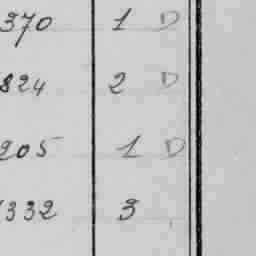 370 1 D
824 2 D
205 1 D
1332 3